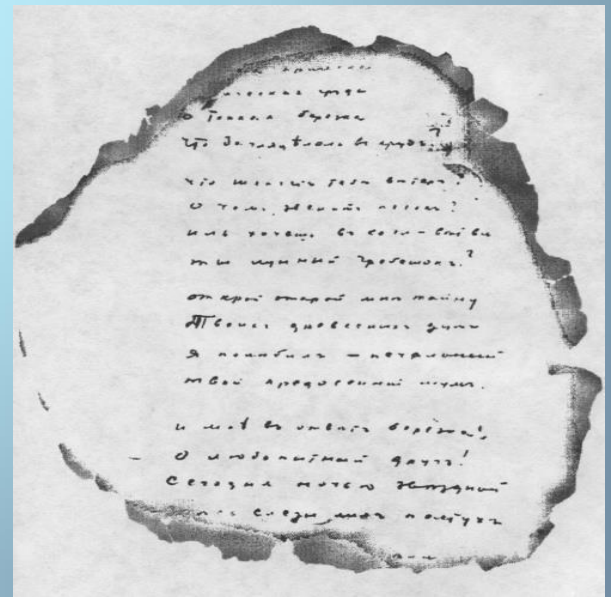 прическа
грудь
О тонкая березка
Что заглядѣлась въ прудъ?
Что шепчетъ тебѣ вѣтеръ?
О чемъ звенитъ песокъ?
иль хочешь въ косы-вѣтви
ты лунный гребешокъ?
открой открой мнѣ тайну
Твоихъ древесныхъ думъ
Я полюбилъ – печальный
твой предосенній шумъ.
и мнѣ въ отвѣтъ берёзка:
О любопытный другъ!
Сегодня ночью звѣздной
слезы лилъ пастухъ